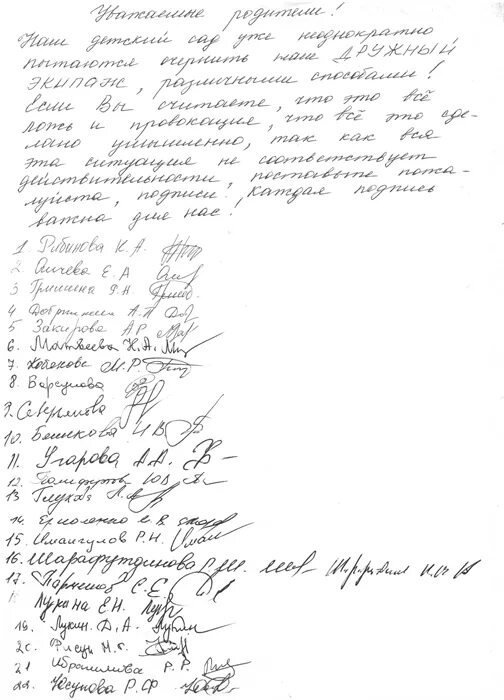 Уважаемые родители!
Наш детский сад уже неоднократно
пытаются очернить наш ДРУЖНЫЙ
ЭКИПАЖ, различными способами!
Если Вы считаете, что это всё
ложь и провокация, что всё это сде-
лано умышленно, так как вся
эта ситуация не соответствует
действительности, поставьте пожа-
луйста, подписи. Каждая подпись
важна для нас!
1. Рябинова К. А.
2. Е. А
3 Гришина Я.Н.
4 А.П
5 Закирова А.Р
6. Матвеева Н.А.
7. М.Р
8. Варсулова
9.
10. Беликова И В
11. Угарова А.А.
12. Ю.В
13 Глухов А.
14. Ермоленко
15. Имангулов Р.Н.
16. Шарафутдинова
17. С.Е.
Лукина Е.Н.
19. Лукин. Д.А.
20. Н.С.
21 Ибрагимова Р.Р.
22. Юсупова Р.Ф